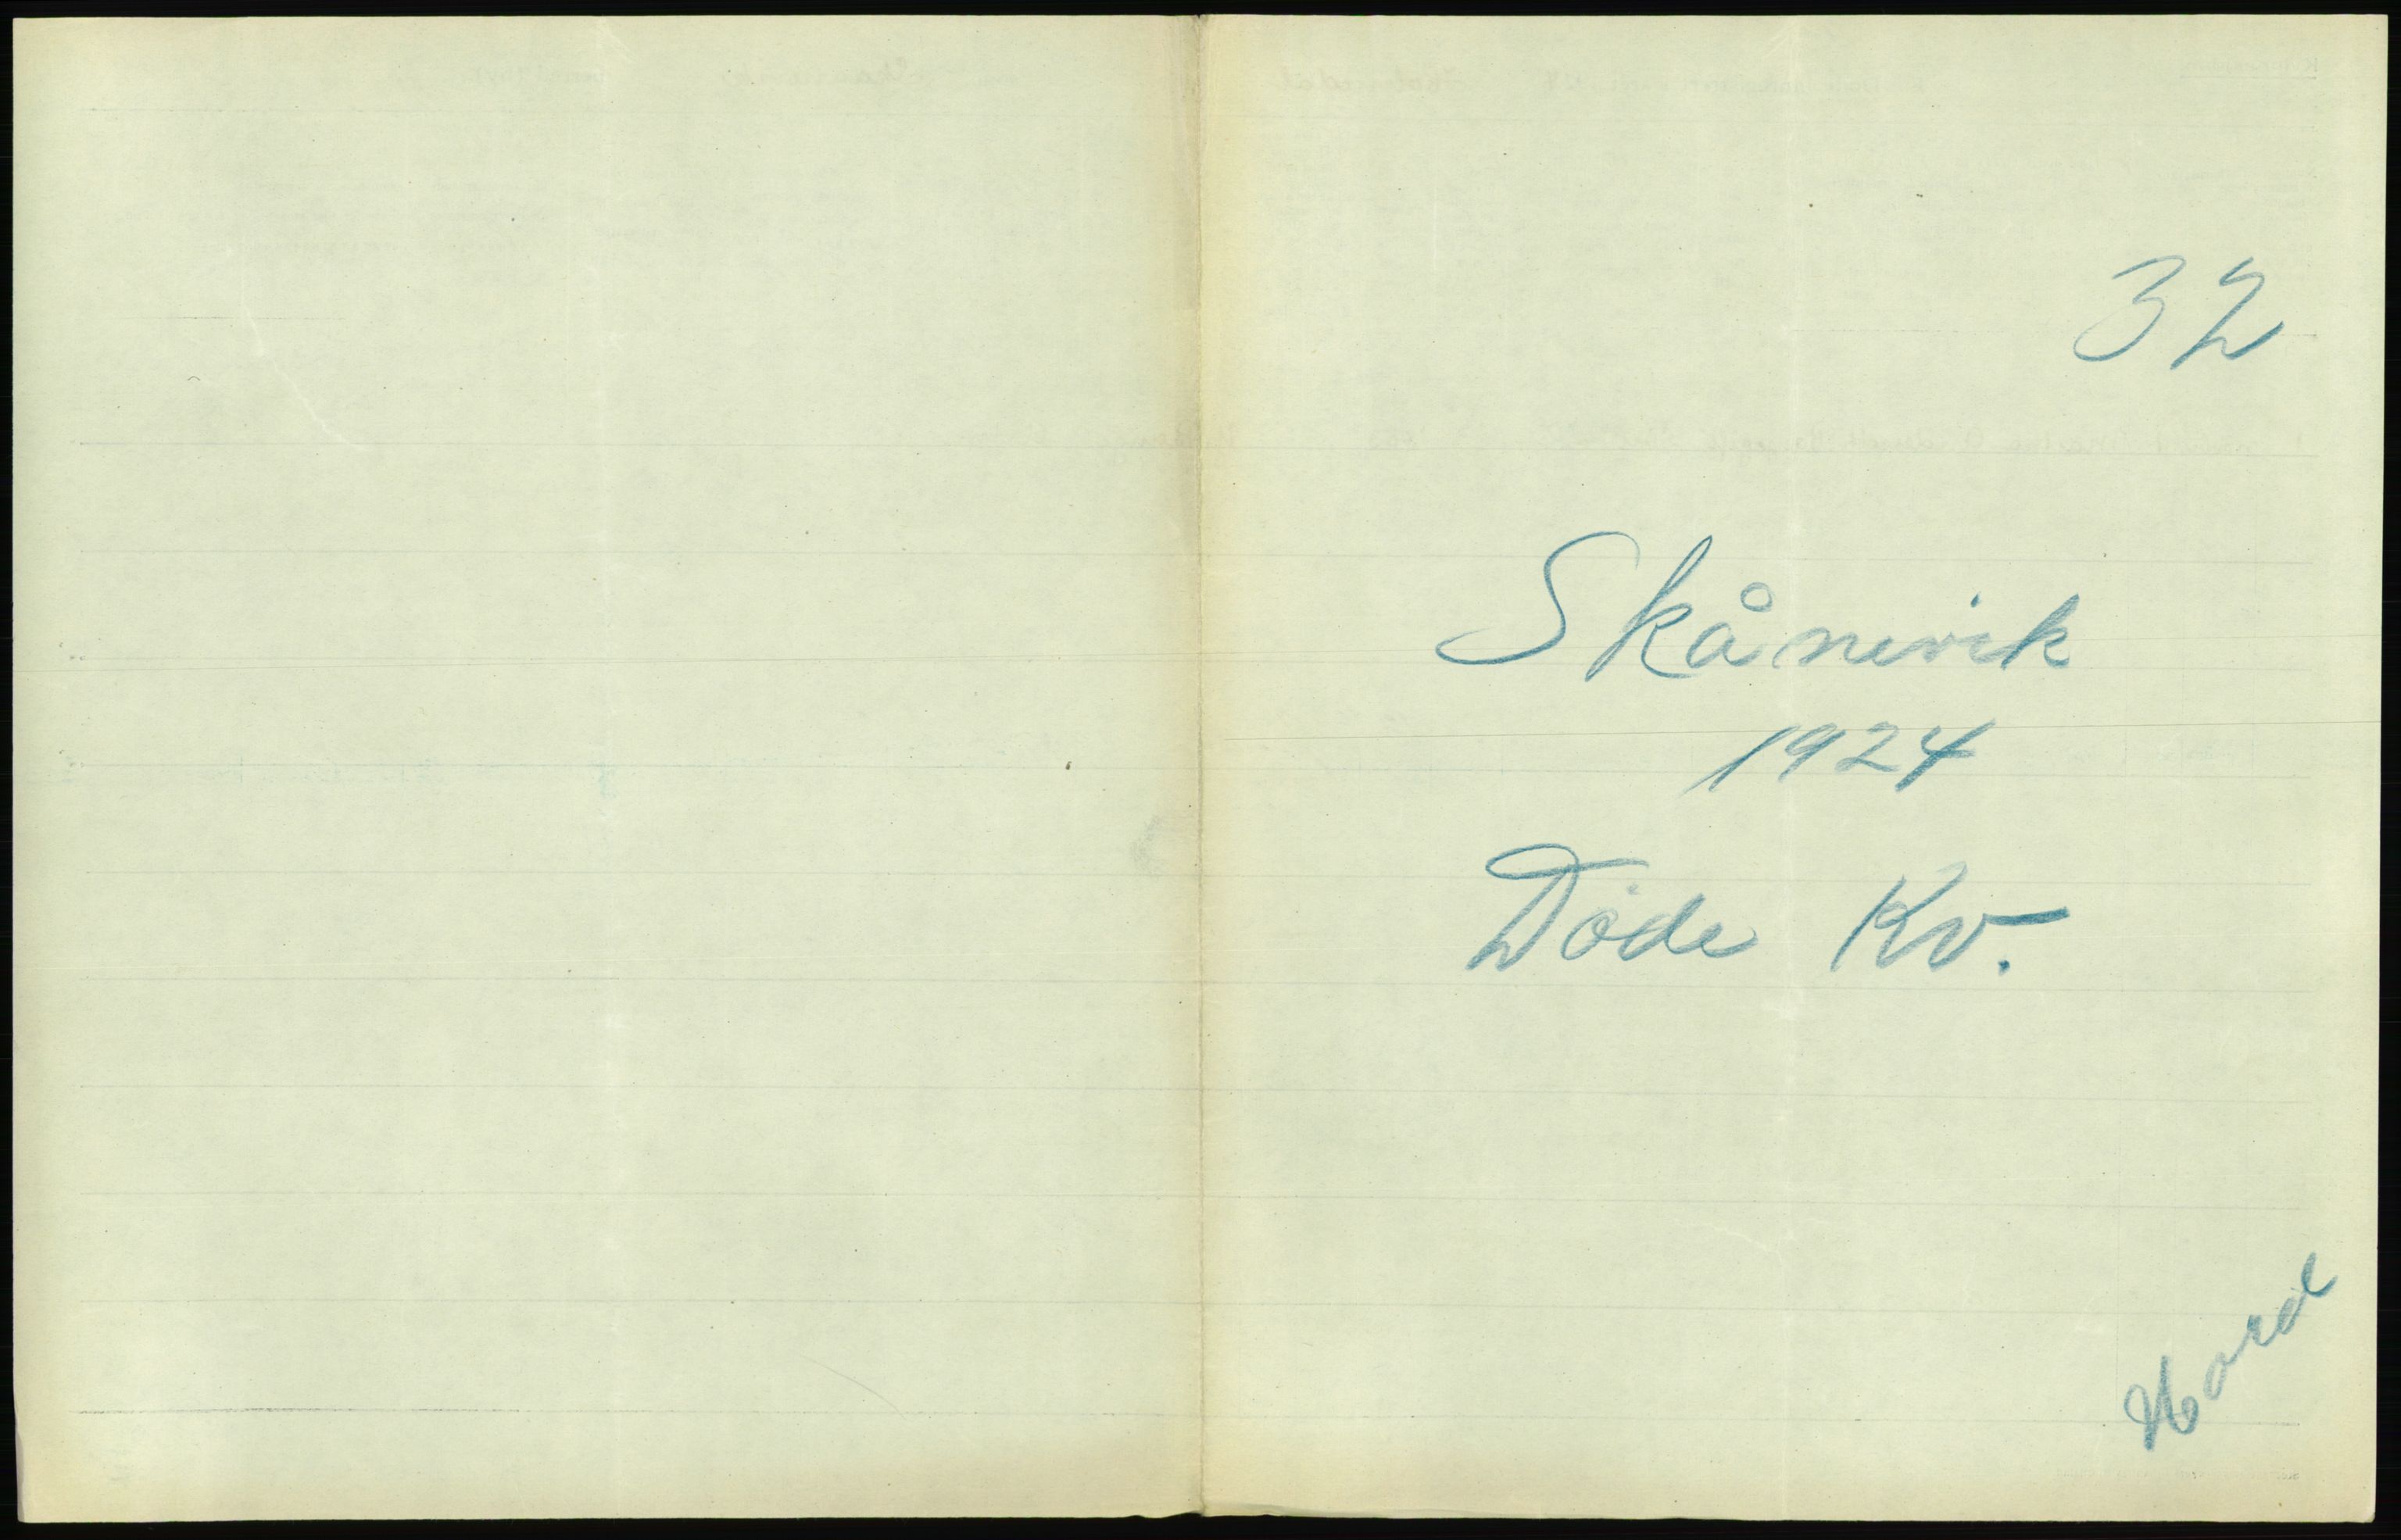 32
Skånevik
1924
Døde Kv.
Hord